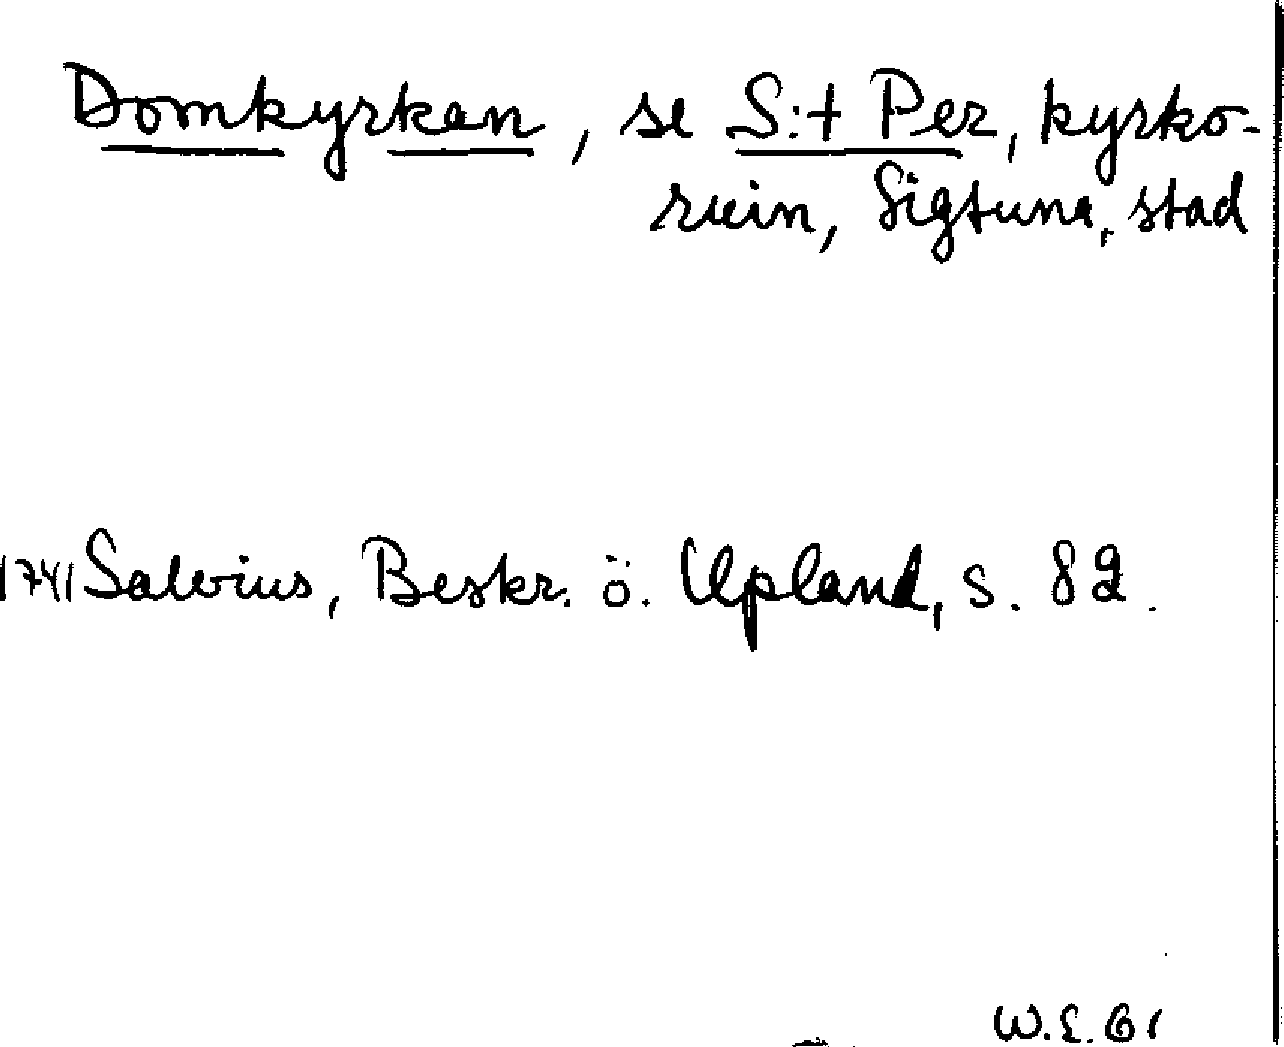 Domkyrkan, se S:t Per, kyrko-
ruin, Sigtuna, stad
1741 Salvius, Beskr. ö. Upland, s. 82.
W.L. 61